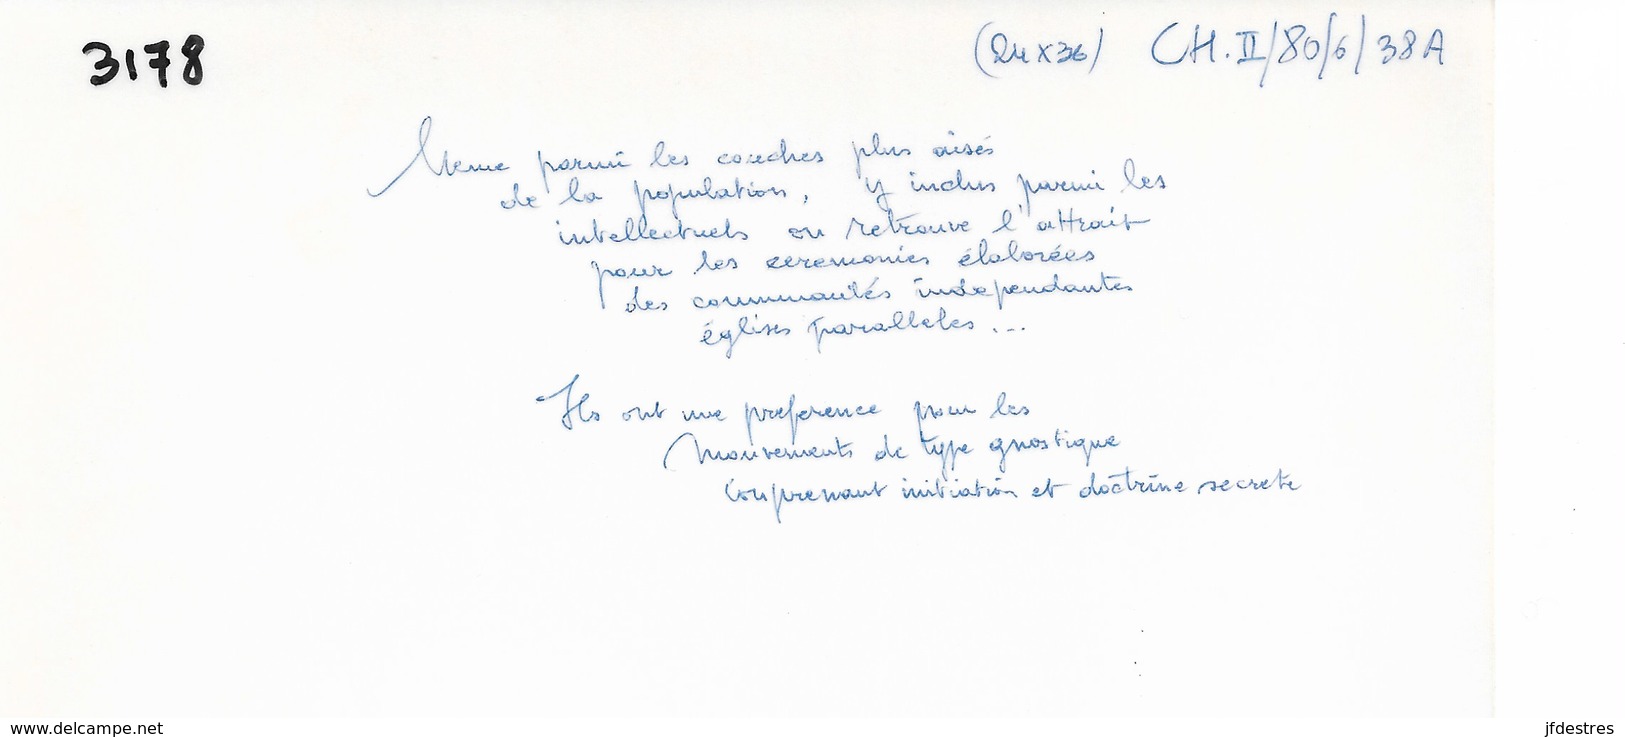 3178
(24x36) CH.II/80/6/38A
Meme parmi les couches plus aisés
de la population, y inclus parmi les
intellectuels on retrouve l'attrait
pour les ceremonies élaborées
des communautés independantes
églises paralleles ...
Ils ont une preference pour les
mouvements de type gnostique
comprenant initiation et doctrine secrete
www.delcampe.net
jfdestres